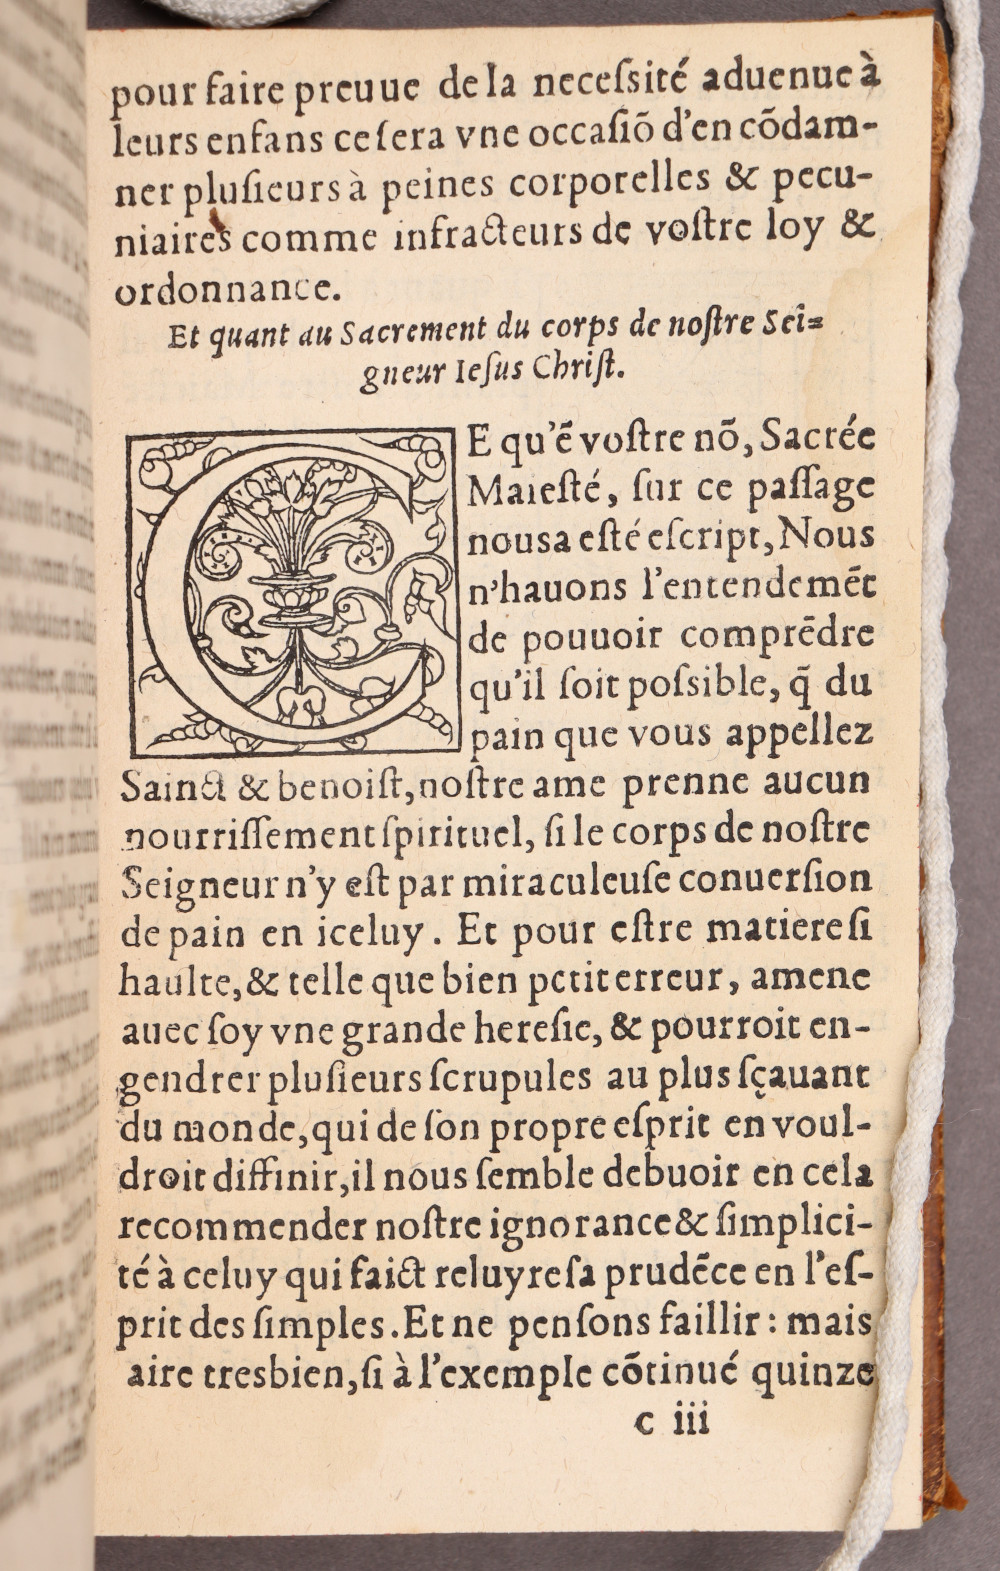 pour faire preuue de la neceſsité aduenue à
leurs enfans ce ſera vne occaſiõ d'en cõdam-
ner pluſieurs à peines corporelles & pecu-
niaires comme infracteurs de voſtre loy &
ordonnance.
Et quant au Sacrement du corps de noſtre Sei-
gneur Ieſus Chriſt.
CE qu'ẽ voſtre nõ, Sacrée
Maieſté, ſur ce paſſage
nous a eſté eſcript, Nous
n'hauons l'entendemẽt
de pouuoir comprẽdre
qu'il ſoit poſsible, q̃ du
pain que vous appellez
Sainct & benoiſt, noſtre ame prenne aucun
nourriſſement ſpirituel, ſi le corps de noſtre
Seigneur n'y eſt par miraculeuſe conuerſion
de pain en iceluy. Et pour eſtre matiere ſi
haulte, & telle que bien petit erreur, amene
auec ſoy vne grande hereſie, & pourroit en-
gendrer pluſieurs ſcrupules au plus ſçauant
du monde, qui de ſon propre eſprit en voul-
droit diffinir, il nous ſemble debuoir en cela
recommender noſtre ignorance & ſimplici-
té à celuy qui faict reluyre ſa prudẽce en l'eſ-
prit des ſimples. Et ne penſons faillir : mais
aire tresbien, ſi à l'exemple cõtinué quinze
c iii